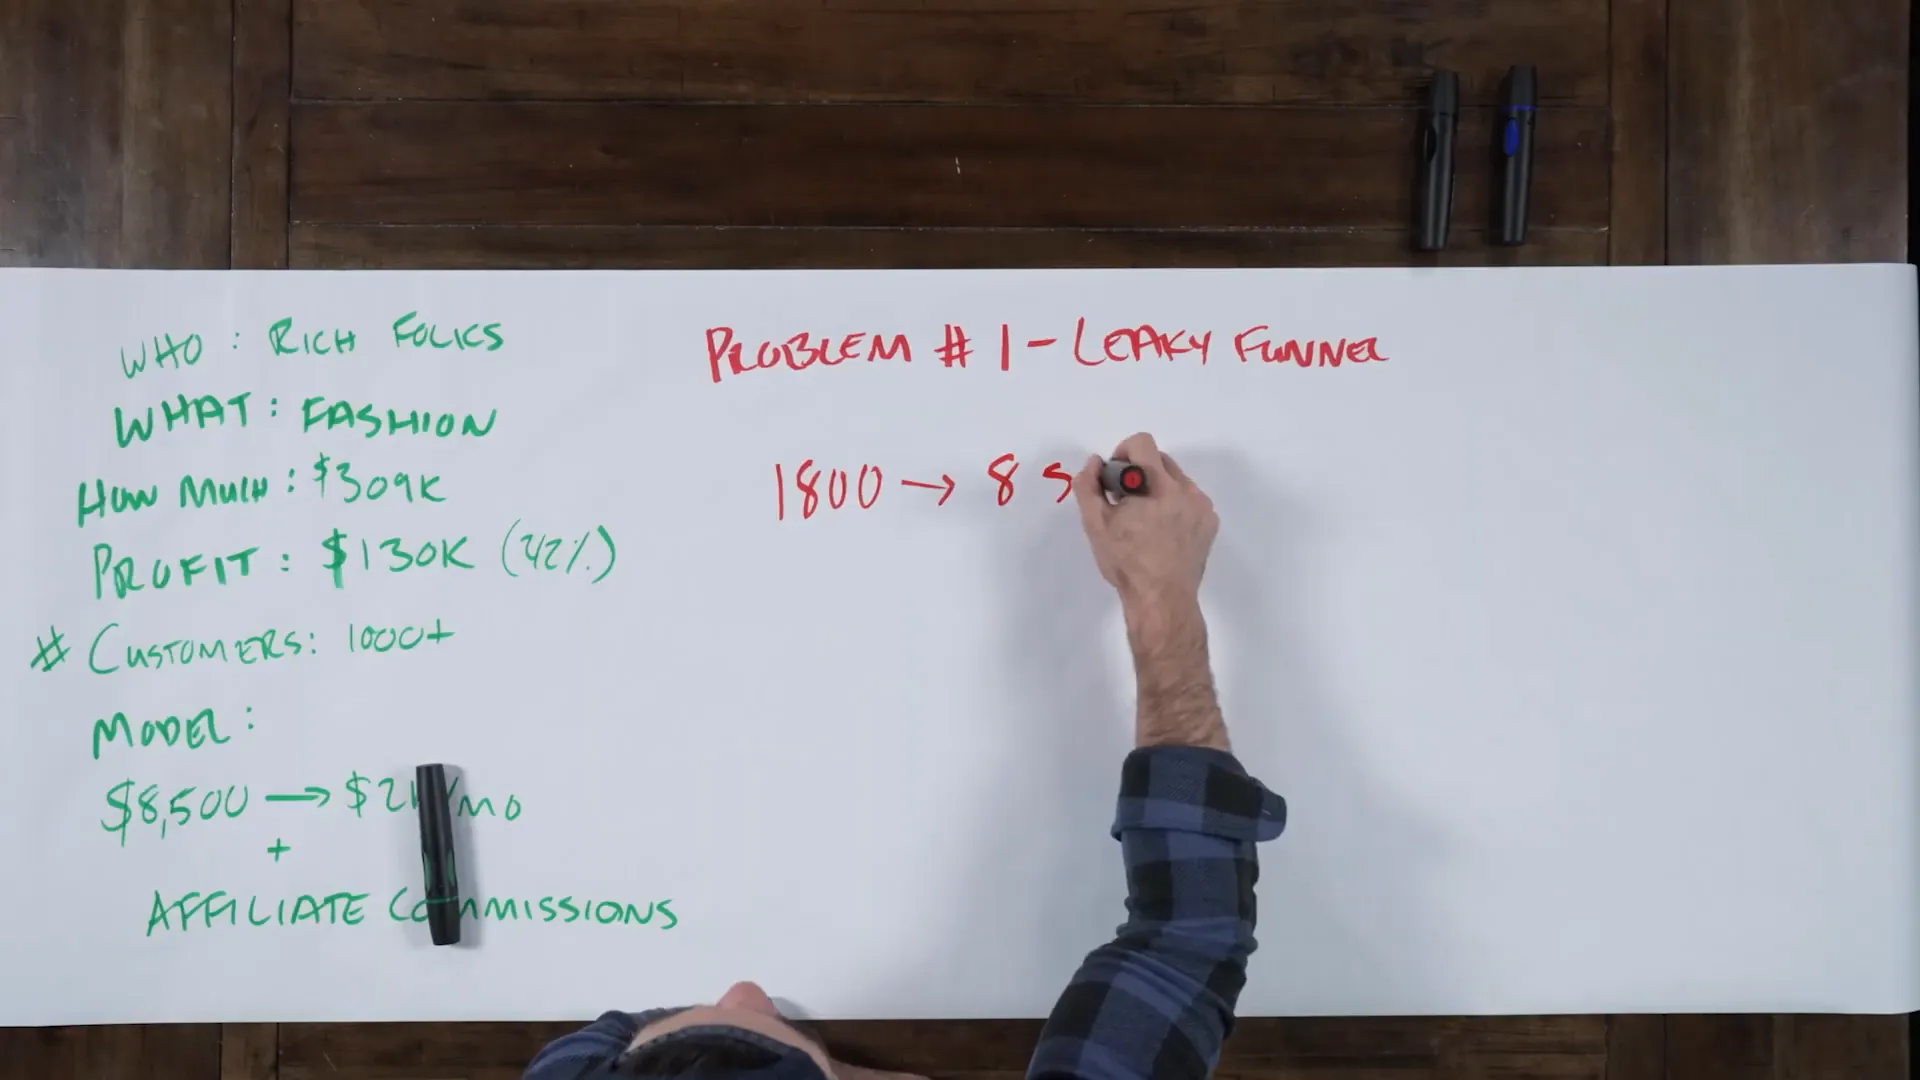 WHO: RICH FOLKS
WHAT: FASHION
HOW MUCH: $309K
PROFIT: $130K (42%)
# CUSTOMERS: 1000+
MODEL:
$8,500 → $2K/MO
+
AFFILIATE COMMISSIONS
PROBLEM #1 - LEAKY FUNNEL
1800 → 8 S